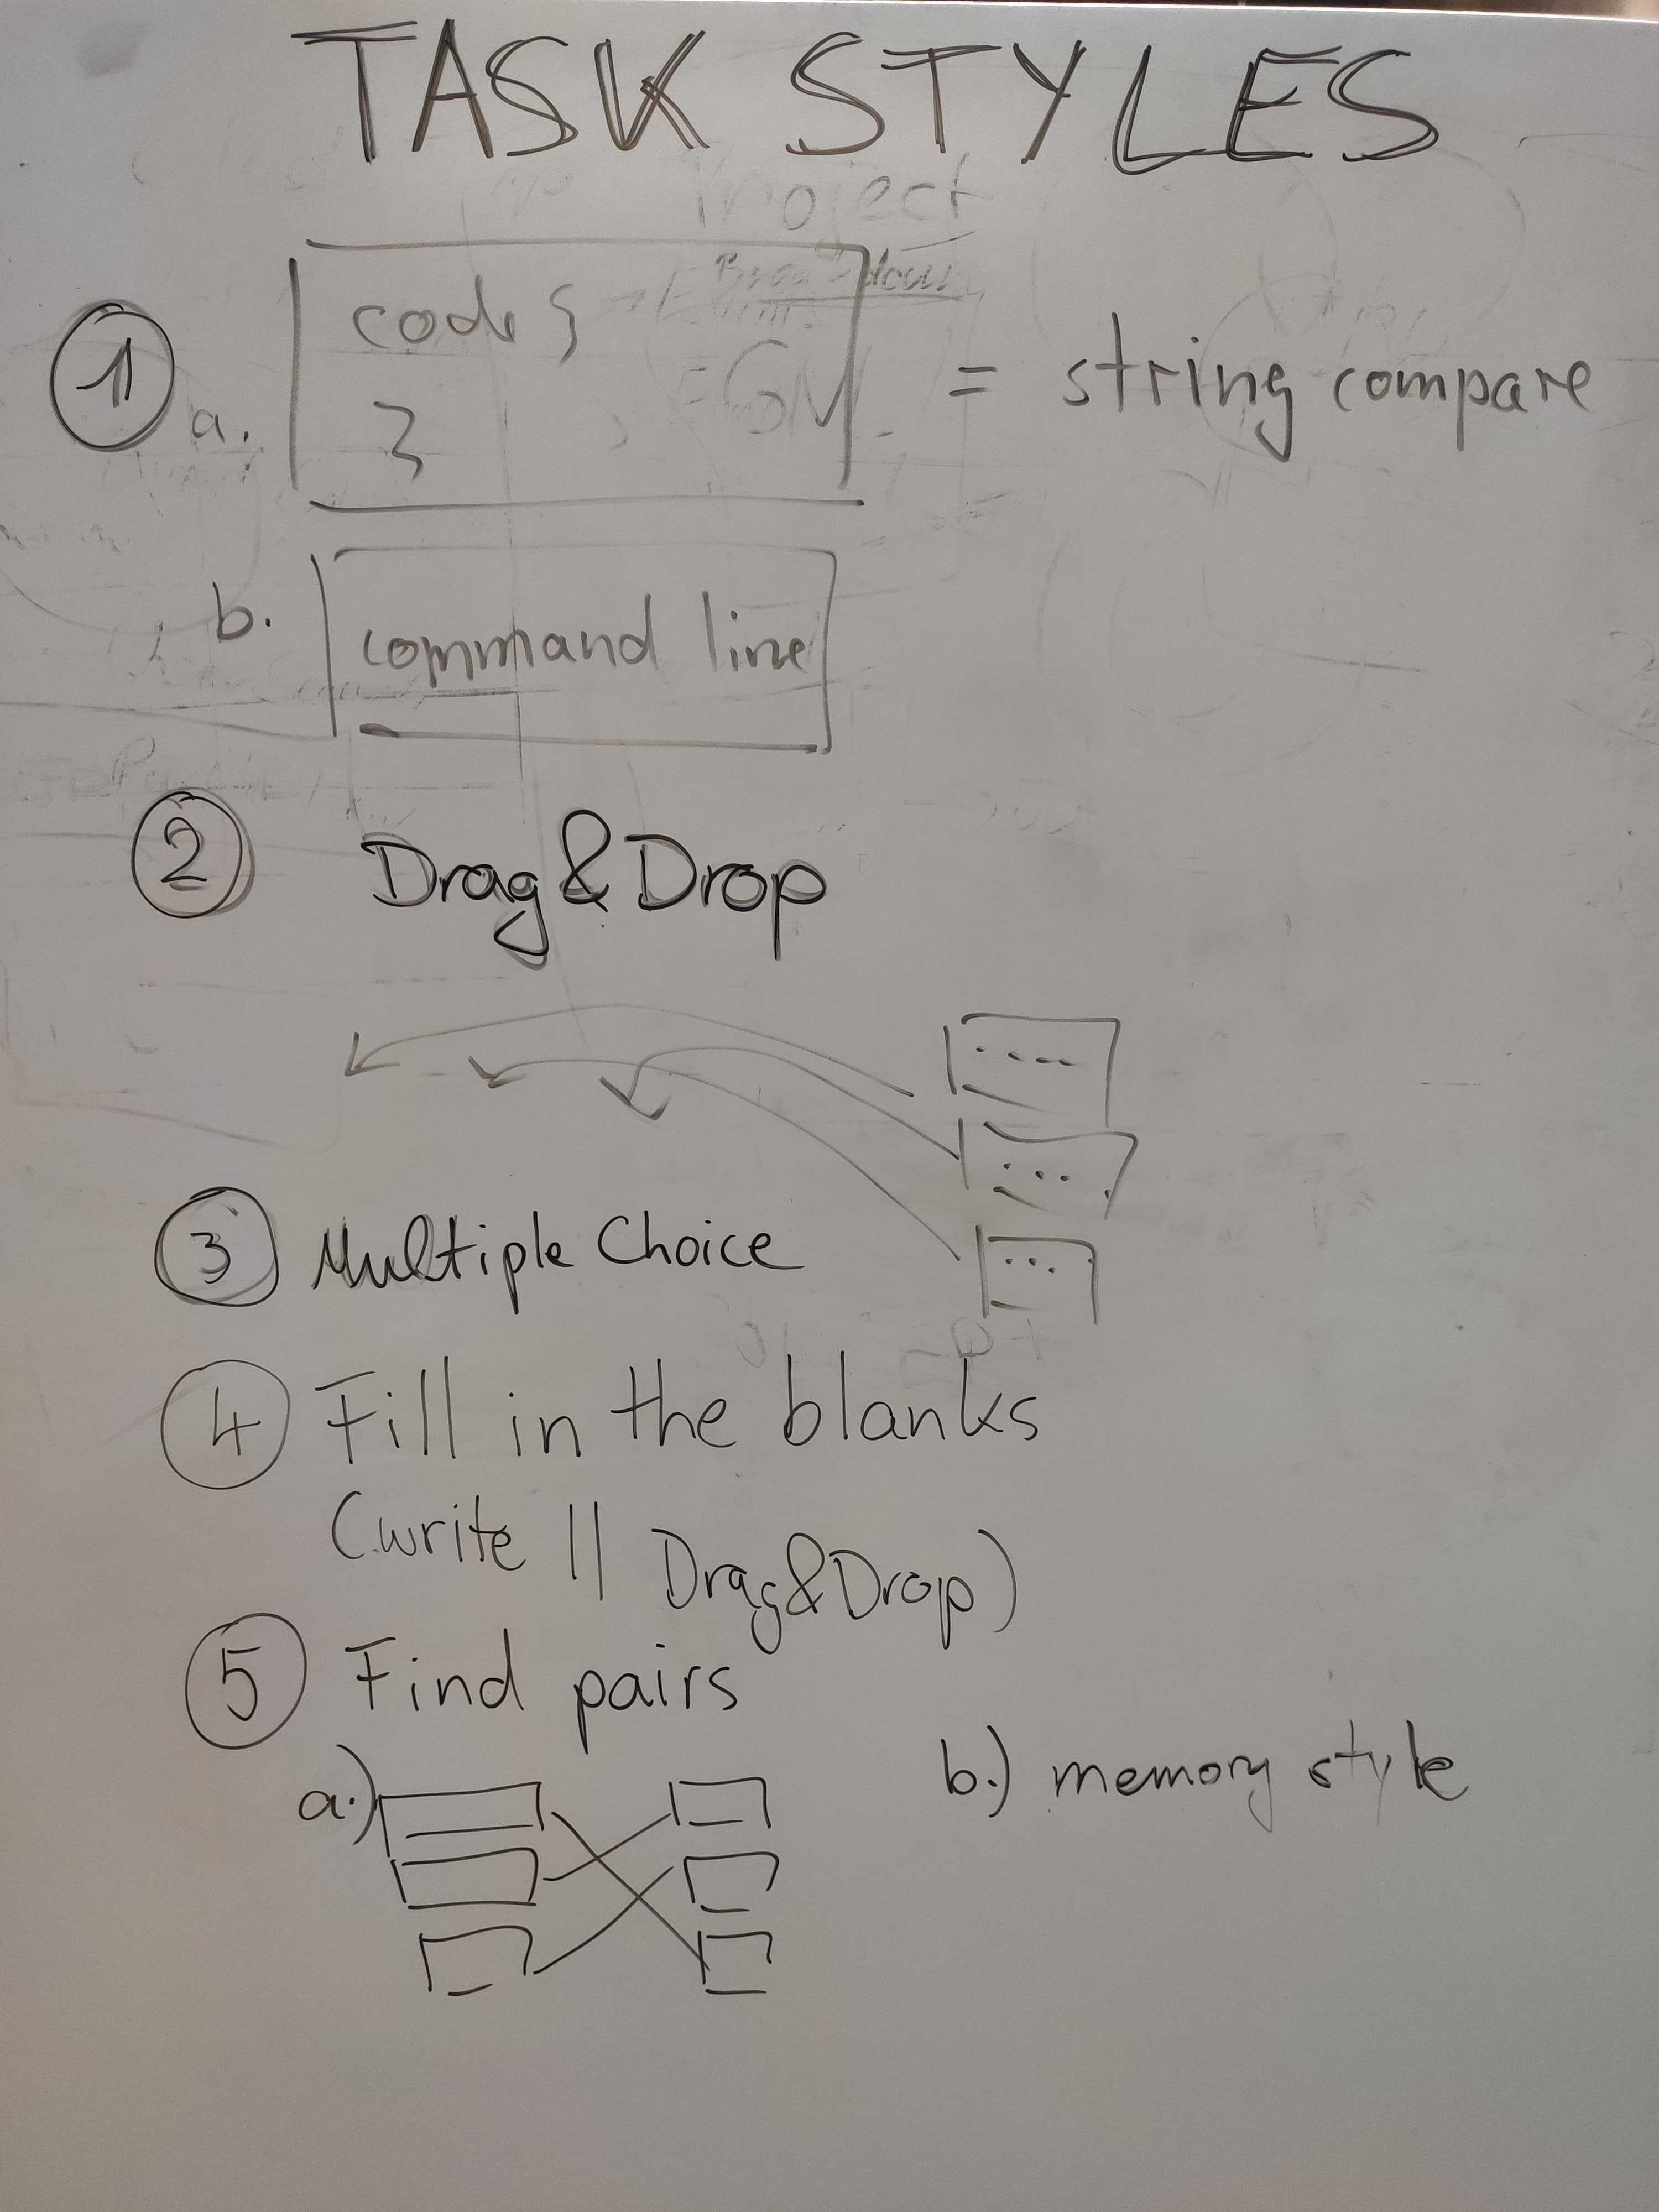 TASK STYLES
Project
1 a. code {
}
= string compare
b. command line
2 Drag&Drop
3 Multiple Choice
4 Fill in the blanks
(write || Drag&Drop)
5 Find pairs
a.)
b.) memory style